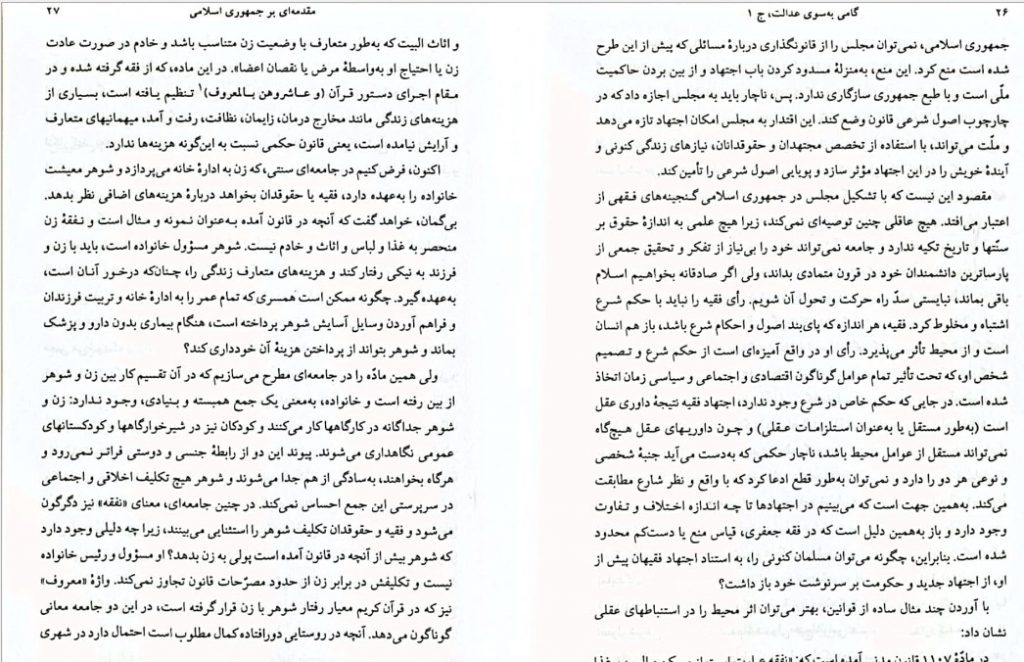 ۲۶
گامی به‌سوی عدالت، ج ۱
جمهوری اسلامی، نمی‌توان مجلس را از قانونگذاری دربارهٔ مسائلی که پیش از این طرح
شده است منع کرد. این منع، به‌منزلهٔ مسدود کردن باب اجتهاد و از بین بردن حاکمیت
ملّی است و با طبع جمهوری سازگاری ندارد. پس، ناچار باید به مجلس اجازه داد که در
چارچوب اصول شرعی قانون وضع کند. این اقتدار به مجلس امکان اجتهاد تازه می‌دهد
و ملّت می‌تواند، با استفاده از تخصص مجتهدان و حقوقدانان، نیازهای زندگی کنونی و
آیندهٔ خویش را در این اجتهاد مؤثر سازد و پویایی اصول شرعی را تأمین کند.
مقصود این نیست که با تشکیل مجلس در جمهوری اسلامی گنجینه‌های فقهی از
اعتبار می‌افتد. هیچ عاقلی چنین توصیه‌ای نمی‌کند، زیرا هیچ علمی به اندازهٔ حقوق بر
سنّتها و تاریخ تکیه ندارد و جامعه نمی‌تواند خود را بی‌نیاز از تفکر و تحقیق جمعی از
پارساترین دانشمندان خود در قرون متمادی بداند، ولی اگر صادقانه بخواهیم اسلام
باقی بماند، نبایستی سدّ راه حرکت و تحول آن شویم. رأی فقیه را نباید با حکم شرع
اشتباه و مخلوط کرد. فقیه، هر اندازه که پای‌بند اصول و احکام شرع باشد، باز هم انسان
است و از محیط تأثر می‌پذیرد. رأی او در واقع آمیزه‌ای است از حکم شرع و تصمیم
شخص او، که تحت تأثیر تمام عوامل گوناگون اقتصادی و اجتماعی و سیاسی زمان اتخاذ
شده است. در جایی که حکم خاص در شرع وجود ندارد، اجتهاد فقیه نتیجهٔ داوری عقل
است (به‌طور مستقل یا به‌عنوان استلزامات عقلی) و چون داوریهای عقل هیچ‌گاه
نمی‌تواند مستقل از عوامل محیط باشد، ناچار حکمی که به‌دست می‌آید جنبهٔ شخصی
و نوعی هر دو را دارد و نمی‌توان به‌طور قطع ادعا کرد که با واقع و نظر شارع مطابقت
می‌کند. به‌همین جهت است که می‌بینیم در اجتهادها تا چه اندازه اختلاف و تفاوت
وجود دارد و باز به‌همین دلیل است که در فقه جعفری، قیاس منع یا دست‌کم محدود
شده است. بنابراین، چگونه می‌توان مسلمان کنونی را، به استناد اجتهاد فقیهان پیش از
او، از اجتهاد جدید و حکومت بر سرنوشت خود باز داشت؟
با آوردن چند مثال ساده از قوانین، بهتر می‌توان اثر محیط را در استنباطهای عقلی
نشان داد:
در مادّهٔ ۱۱۰۷ قانون مدنی آمده است که: «نفقه عبارت است از
مقدمه‌ای بر جمهوری اسلامی
۲۷
و اثاث البیت که به‌طور متعارف با وضعیت زن متناسب باشد و خادم در صورت عادت
زن یا احتیاج او به‌واسطهٔ مرض یا نقصان اعضا». در این ماده، که از فقه گرفته شده و در
مقام اجرای دستور قرآن (و عاشروهن بالمعروف)۱ تنظیم یافته است، بسیاری از
هزینه‌های زندگی مانند مخارج درمان، زایمان، نظافت، رفت و آمد، میهمانیهای متعارف
و آرایش نیامده است، یعنی قانون حکمی نسبت به این‌گونه هزینه‌ها ندارد.
اکنون، فرض کنیم در جامعه‌ای سنتی، که زن به ادارهٔ خانه می‌پردازد و شوهر معیشت
خانواده را به‌عهده دارد، فقیه یا حقوقدان بخواهد دربارهٔ هزینه‌های اضافی نظر بدهد.
بی‌گمان، خواهد گفت که آنچه در قانون آمده به‌عنوان نمونه و مثال است و نفقهٔ زن
منحصر به غذا و لباس و اثاث و خادم نیست. شوهر مسؤول خانواده است، باید با زن و
فرزند به نیکی رفتار کند و هزینه‌های متعارف زندگی را، چنان‌که درخور آنان است،
به‌عهده گیرد. چگونه ممکن است همسری که تمام عمر را به ادارهٔ خانه و تربیت فرزندان
و فراهم آوردن وسایل آسایش شوهر پرداخته است، هنگام بیماری بدون دارو و پزشک
بماند و شوهر بتواند از پرداختن هزینهٔ آن خودداری کند؟
ولی همین مادّه را در جامعه‌ای مطرح می‌سازیم که در آن تقسیم کار بین زن و شوهر
از بین رفته است و خانواده، به‌معنی یک جمع همبسته و بنیادی، وجود ندارد: زن و
شوهر جداگانه در کارگاهها کار می‌کنند و کودکان نیز در شیرخوارگاهها و کودکستانهای
عمومی نگاهداری می‌شوند. پیوند این دو از رابطهٔ جنسی و دوستی فراتر نمی‌رود و
هرگاه بخواهند، به‌سادگی از هم جدا می‌شوند و شوهر هیچ تکلیف اخلاقی و اجتماعی
در سرپرستی این جمع احساس نمی‌کند. در چنین جامعه‌ای، معنای «نفقه» نیز دگرگون
می‌شود و فقیه و حقوقدان تکلیف شوهر را استثنایی می‌بینند، زیرا چه دلیلی وجود دارد
که شوهر بیش از آنچه در قانون آمده است پولی به زن بدهد؟ او مسؤول و رئیس خانواده
نیست و تکلیفش در برابر زن از حدود مصرّحات قانون تجاوز نمی‌کند. واژهٔ «معروف»
نیز که در قرآن کریم معیار رفتار شوهر با زن قرار گرفته است، در این دو جامعه معانی
گوناگون می‌دهد. آنچه در روستایی دورافتاده کمال مطلوب است احتمال دارد در شهری